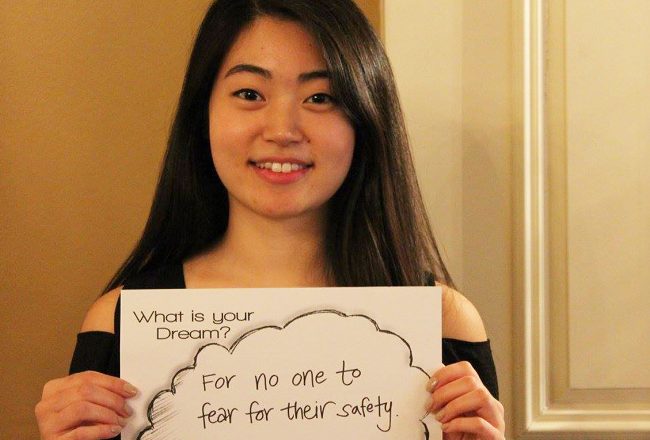 What is your
Dream?
For no one to
fear for their safety.